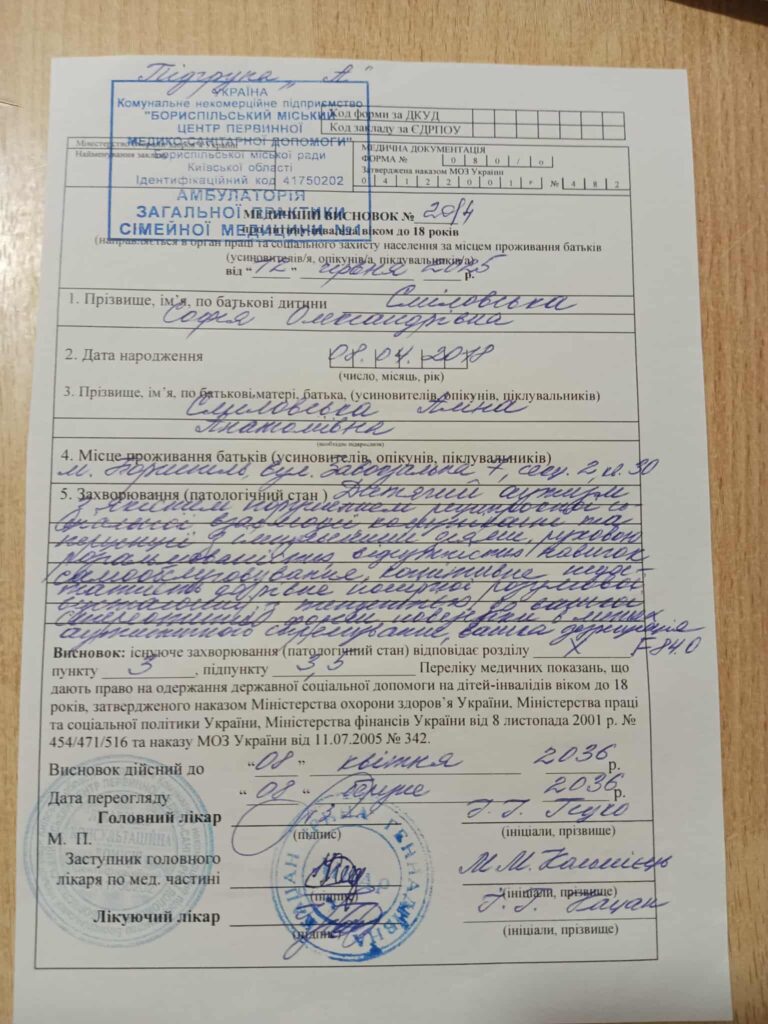 Підгрупа "А"
УКРАЇНА
Комунальне некомерційне підприємство
"БОРИСПІЛЬСЬКИЙ МІСЬКИЙ
ЦЕНТР ПЕРВИННОЇ
МЕДИКО-САНІТАРНОЇ ДОПОМОГИ"
Бориспільської міської ради
Київської області
Ідентифікаційний код 41750202
АМБУЛАТОРІЯ
ЗАГАЛЬНОЇ ПРАКТИКИ
СІМЕЙНОЇ МЕДИЦИНИ №1
Код форми за ДКУД
Код закладу за ЄДРПОУ
Міністерство охорони здоров'я України
Найменування закладу
МЕДИЧНА ДОКУМЕНТАЦІЯ
ФОРМА № 0 8 0 / о
Затверджена наказом МОЗ України
0 4 1 2 2 0 0 1 р № 4 8 2
МЕДИЧНИЙ ВИСНОВОК № 20/4
про дитину-інваліда віком до 18 років
(направляється в орган праці та соціального захисту населення за місцем проживання батьків
(усиновителів/я, опікунів/а, піклувальників/а)
від "12" червня 2025 р.
1. Прізвище, ім'я, по батькові дитини Сміловська
Софія Олександрівна
2. Дата народження 08.04.2018
(число, місяць, рік)
3. Прізвище, ім'я, по батькові матері, батька, (усиновителів, опікунів, піклувальників)
Сміловська Аліна
Анатоліївна
(необхідне підкреслити)
4. Місце проживання батьків (усиновителів, опікунів, піклувальників)
м. Бориспіль, вул. Завокзальна 7, секц. 2, кв. 30
5. Захворювання (патологічний стан) Дитячий аутизм
з якісним порушенням реципрокної со-
ціальної взаємодії комунікації та
руховою
розгальмованістю, відсутністю навичок
самообслуговування, когнітивне недо-
розумової
форм поведінки
аутистичного спектру, важка F 84.0
Висновок: існуюче захворювання (патологічний стан) відповідає розділу X
пункту 3, підпункту 3,5 Переліку медичних показань, що
дають право на одержання державної соціальної допомоги на дітей-інвалідів віком до 18
років, затвердженого наказом Міністерства охорони здоров'я України, Міністерства праці
та соціальної політики України, Міністерства фінансів України від 8 листопада 2001 р. №
454/471/516 та наказу МОЗ України від 11.07.2005 № 342.
Висновок дійсний до "08" квітня 2036 р.
Дата переогляду "08" 2036 р.
Головний лікар
(підпис) (ініціали, прізвище)
М. П.
Заступник головного
лікаря по мед. частині М.М. Коломієць
(підпис) (ініціали, прізвище)
Лікуючий лікар Г.Г. Кацан
(підпис) (ініціали, прізвище)